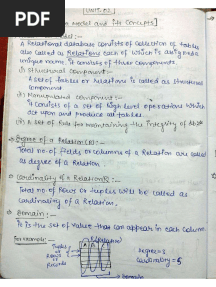 PDF
[UNIT-II]
model and its Concepts]
model :-
A Relational database consists of collection of tables
also called as Relations each of which is assigned a
unique name. it consists of three components.
(i) Structural Component :-
A set of tables or relations is called as structural
component
(ii) Manipulated component :-
It consists of a set of high level operations which
act upon and produce all tables.
(iii) A set of Rule for maintaining the integrity of
Degree of a Relation(R) :-
Total no of Fields or columns of a Relation are called
as degree of a Relation
Cardinality of a Relation(R) :-
Total no of Rows or tuples will be called as
Cardinality of a Relation.
Domain :-
It is the set of value that can appear in each column
for example :-
Tuples
or
Rows
or
records
R (Relation)
degree = 3
Cardinality = 5
Domain